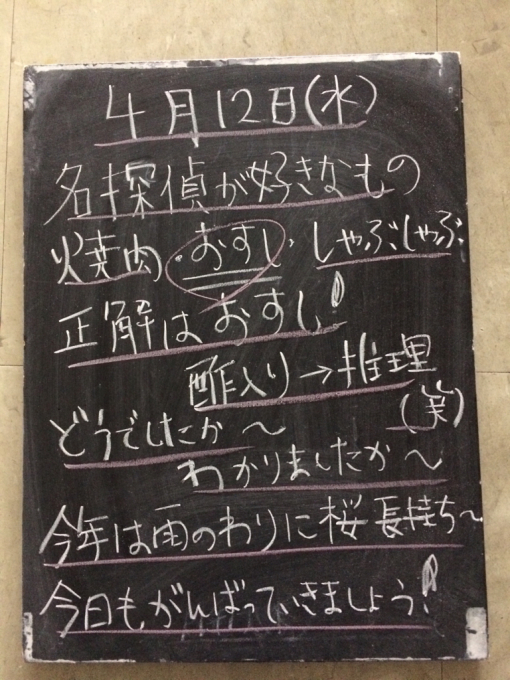 4月12日(水)
名探偵が好きなもの
焼肉・おすし・しゃぶしゃぶ
正解はおすし!
酢入り→推理
(笑)
どうでしたか〜
わかりましたか〜
今年は雨のわりに桜長持ち〜
今日もがんばっていきましょう!